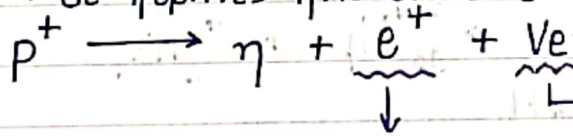 p⁺ → η + e⁺ + νe